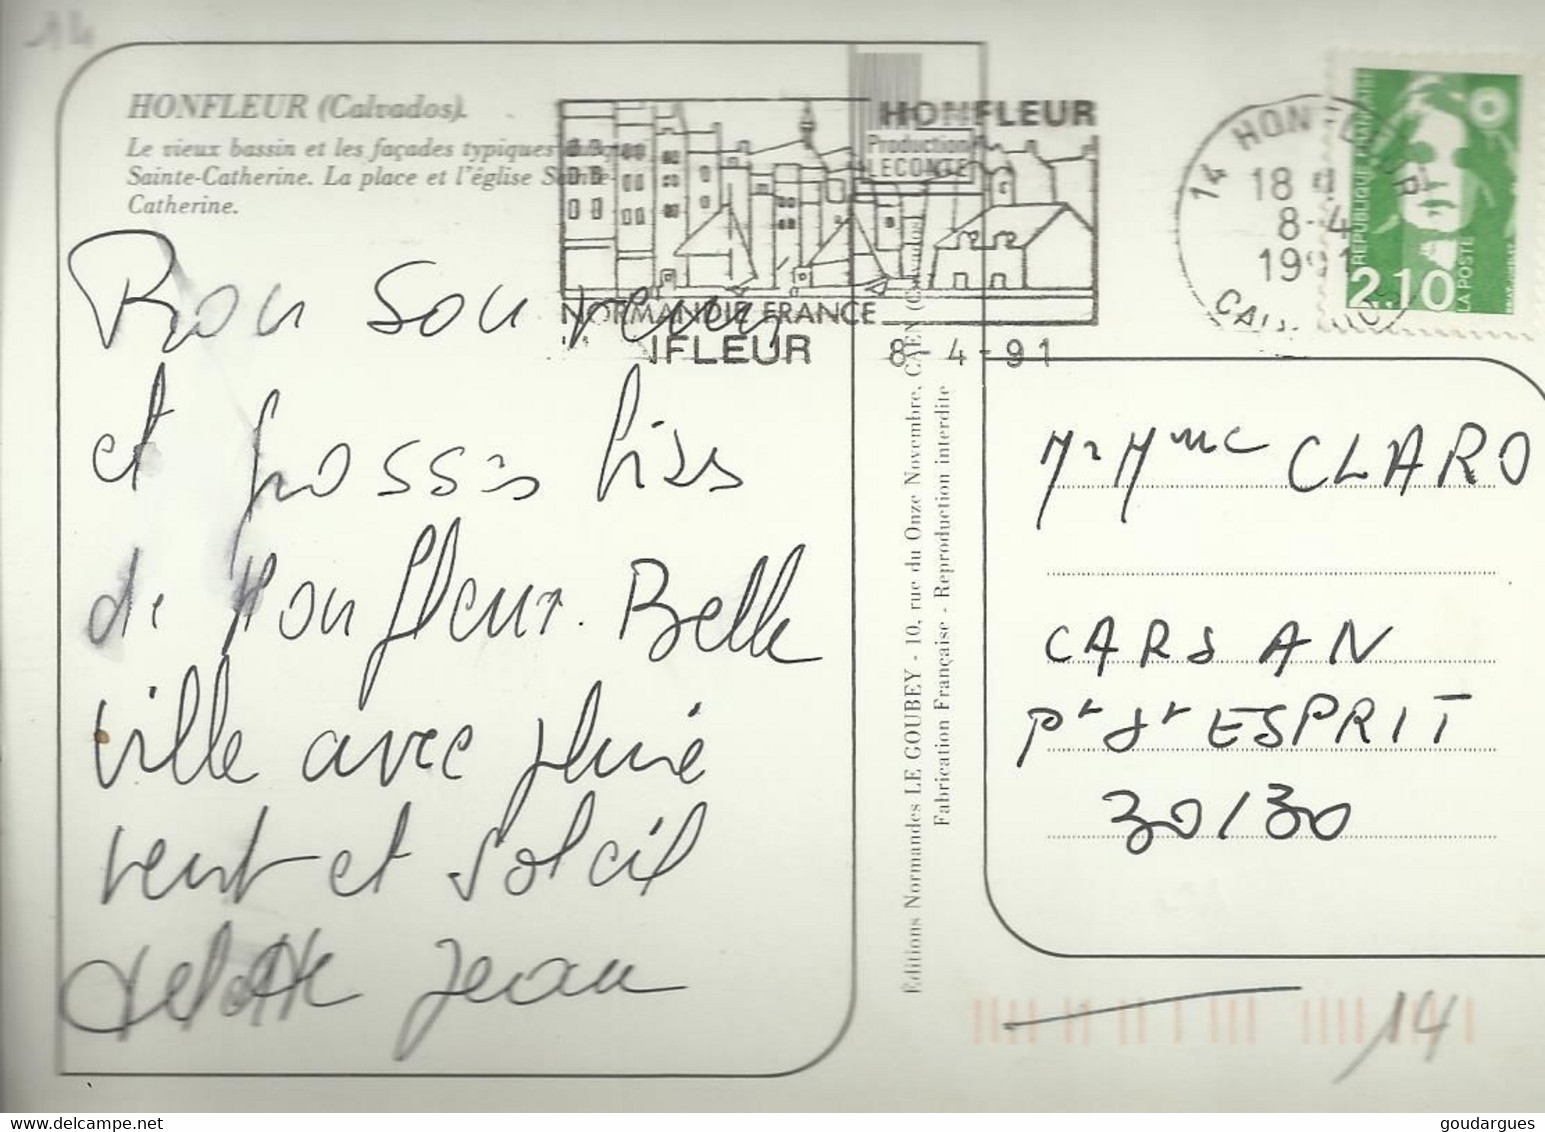 14
HONFLEUR (Calvados).
Le vieux bassin et les façades typiques
Sainte-Catherine. La place et l'église Sainte-
Catherine.
HONFLEUR
Production
LECONTE
NORMANDIE FRANCE
8-4-91
14 HONFLEUR
18
8-4
1991
REPUBLIQUE FRANÇAISE
2,10
LA POSTE
Bon Souvenir
et grosses bises
de Honfleur. Belle
ville avec pluie
vent et Soleil
Jean
Editions Normandes LE GOUBEY - 10, rue du Onze Novembre, CAEN (Calvados)
Fabrication Française - Reproduction interdite
Mr Mme CLARO
CARSAN
Pt St ESPRIT
30130
14
goudargues